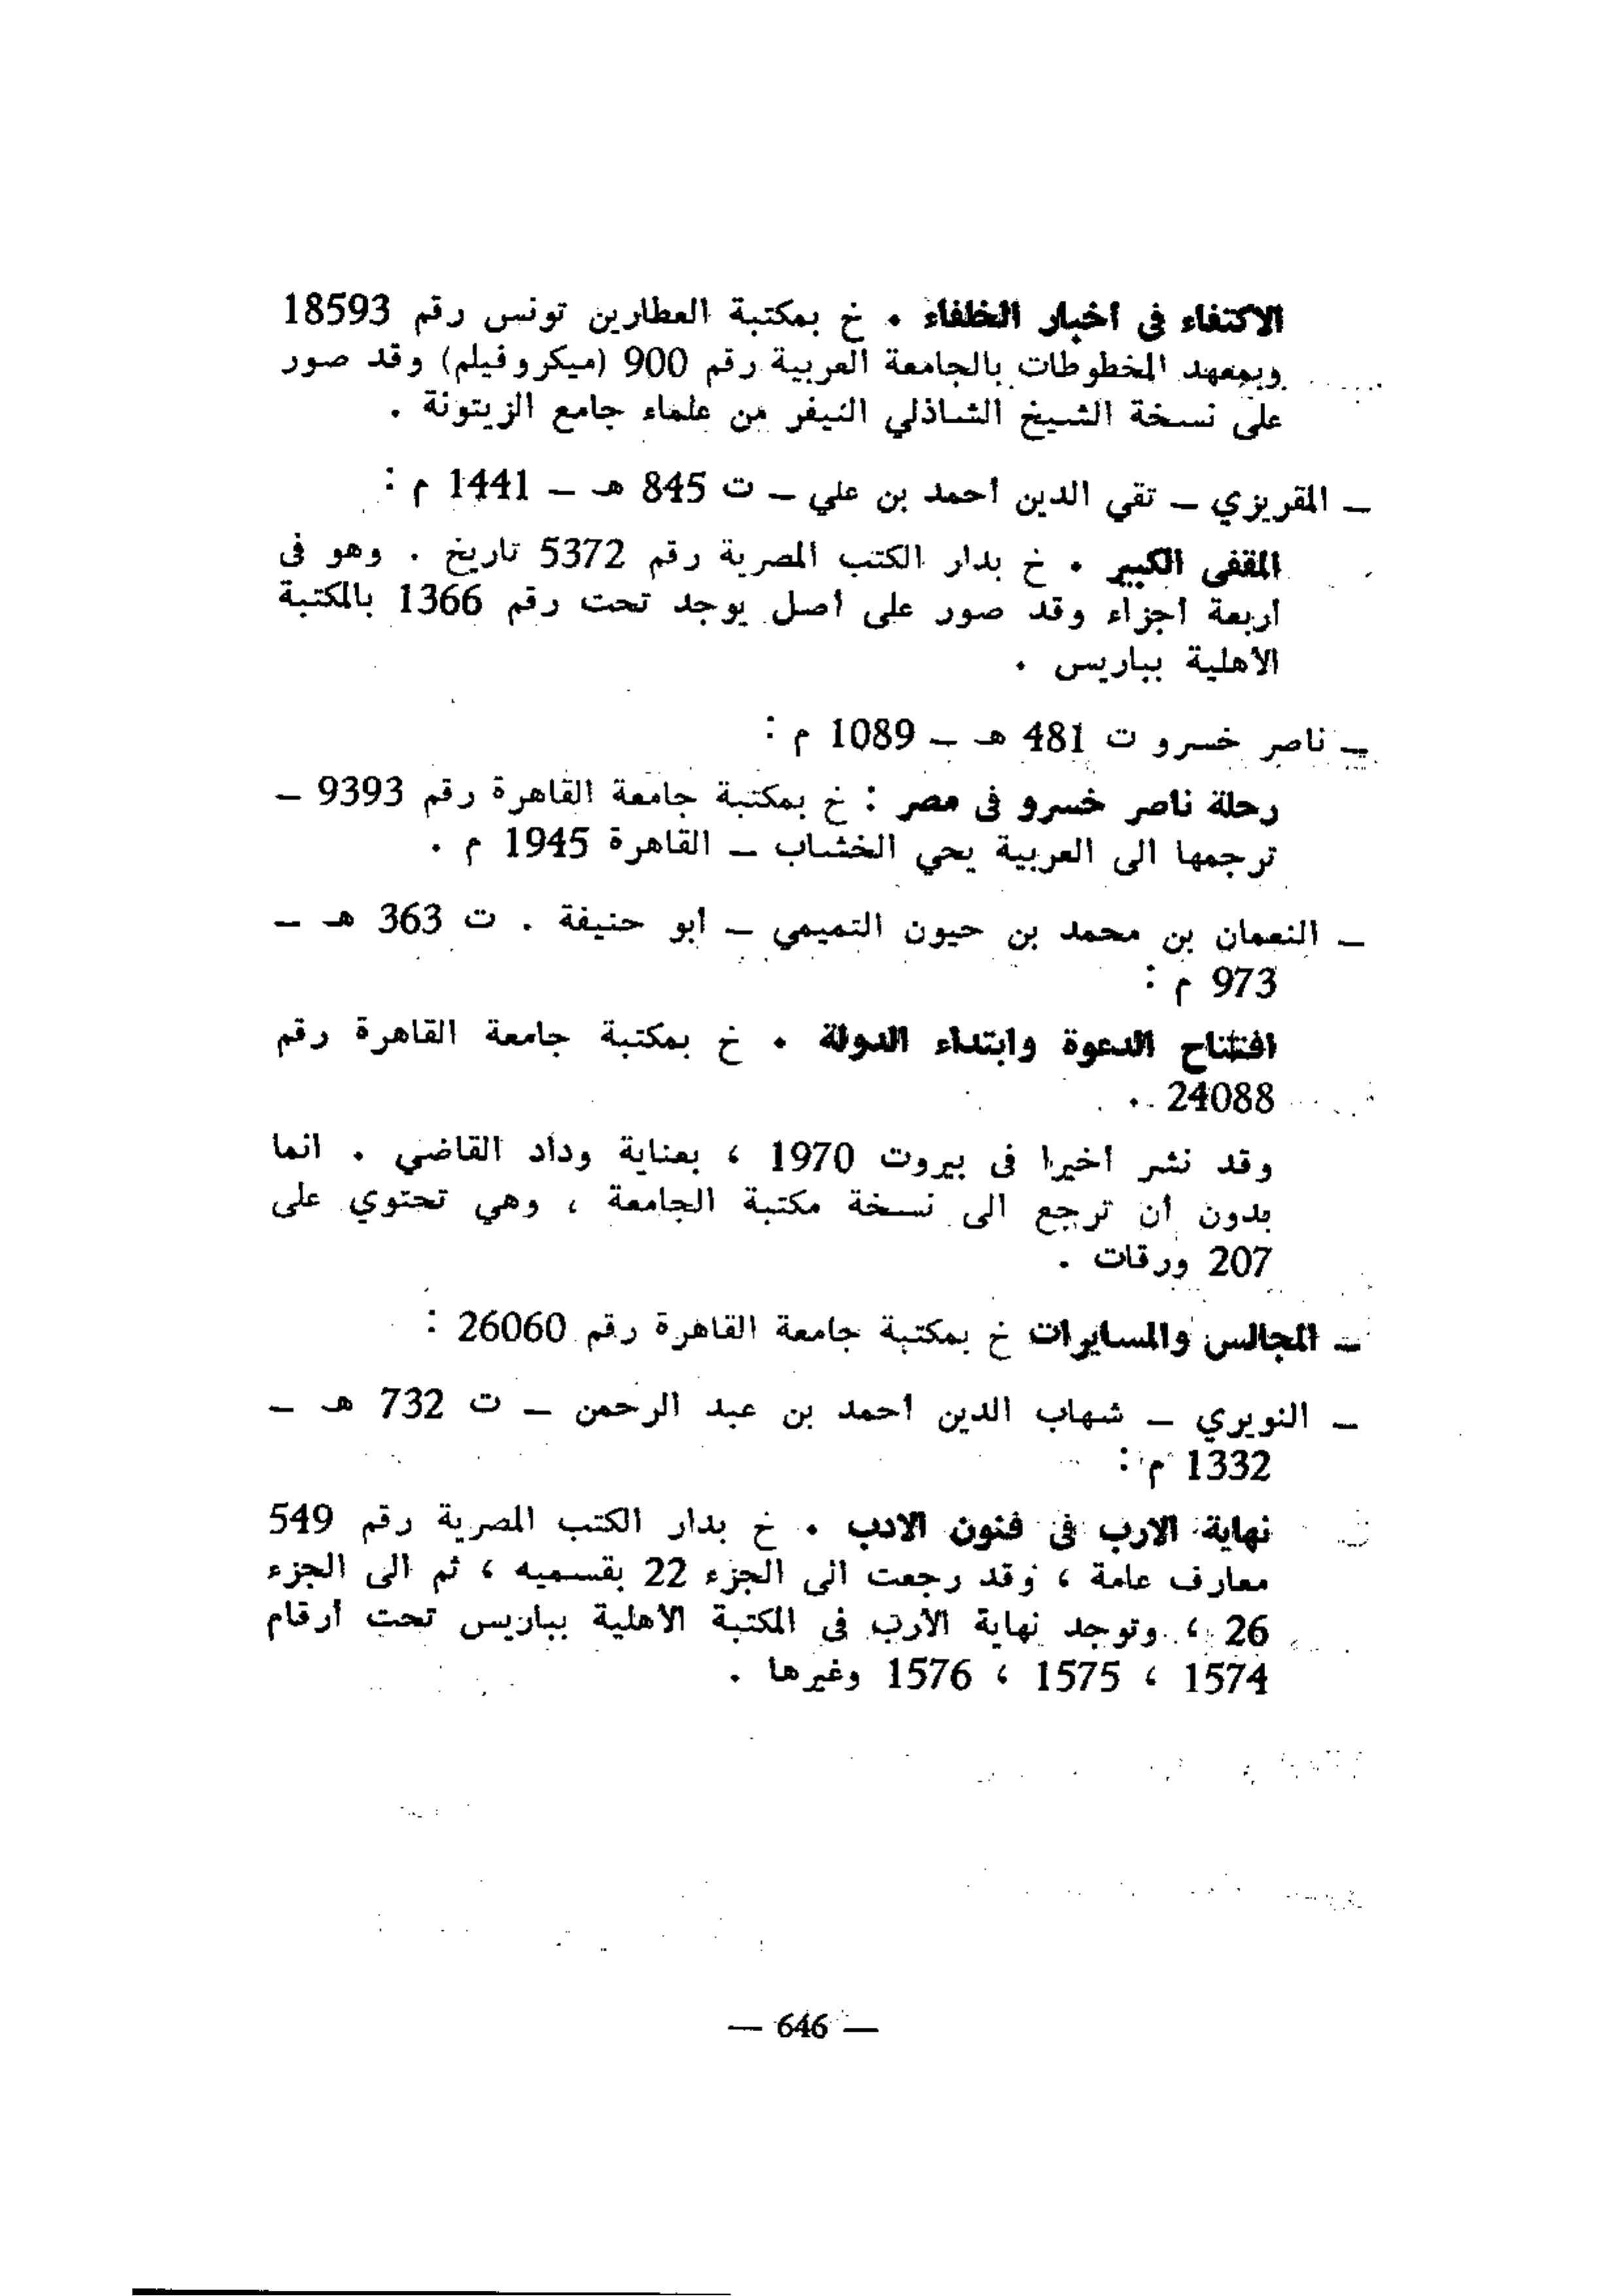 الاكتفاء فى اخبار الخلفاء . خ بمكتبة العطارين تونس رقم 18593
وبمعهد المخطوطات بالجامعة العربية رقم 900 (ميكروفيلم) وقد صور
على نسخة الشيخ الشاذلي النيفر من علماء جامع الزيتونة .
ــ المقريزي ــ تقي الدين احمد بن علي ــ ت 845 هـ ــ 1441 م :
المقفى الكبير . خ بدار الكتب المصرية رقم 5372 تاريخ . وهو فى
اربعة اجزاء وقد صور على اصل يوجد تحت رقم 1366 بالمكتبة
الاهلية بباريس .
ــ ناصر خسرو ت 481 هـ ــ 1089 م :
رحلة ناصر خسرو فى مصر : خ بمكتبة جامعة القاهرة رقم 9393 ــ
ترجمها الى العربية يحي الخشاب ــ القاهرة 1945 م .
ــ النعمان بن محمد بن حيون التميمي ــ ابو حنيفة . ت 363 هـ ــ
973 م :
افتتاح الدعوة وابتداء الدولة . خ بمكتبة جامعة القاهرة رقم
24088 .
وقد نشر اخيرا فى بيروت 1970 ، بعناية وداد القاضي . انما
بدون أن ترجع الى نسخة مكتبة الجامعة ، وهي تحتوي على
207 ورقات .
ــ المجالس والمسايرات خ بمكتبة جامعة القاهرة رقم 26060 :
ــ النويري ــ شهاب الدين احمد بن عبد الرحمن ــ ت 732 هـ ــ
1332 م :
نهاية الارب فى فنون الادب . خ بدار الكتب المصرية رقم 549
معارف عامة ، وقد رجعت الى الجزء 22 بقسميه ، ثم الى الجزء
26 ، وتوجد نهاية الأرب فى المكتبة الاهلية بباريس تحت أرقام
1574 ، 1575 ، 1576 وغيرها .
— 646 —